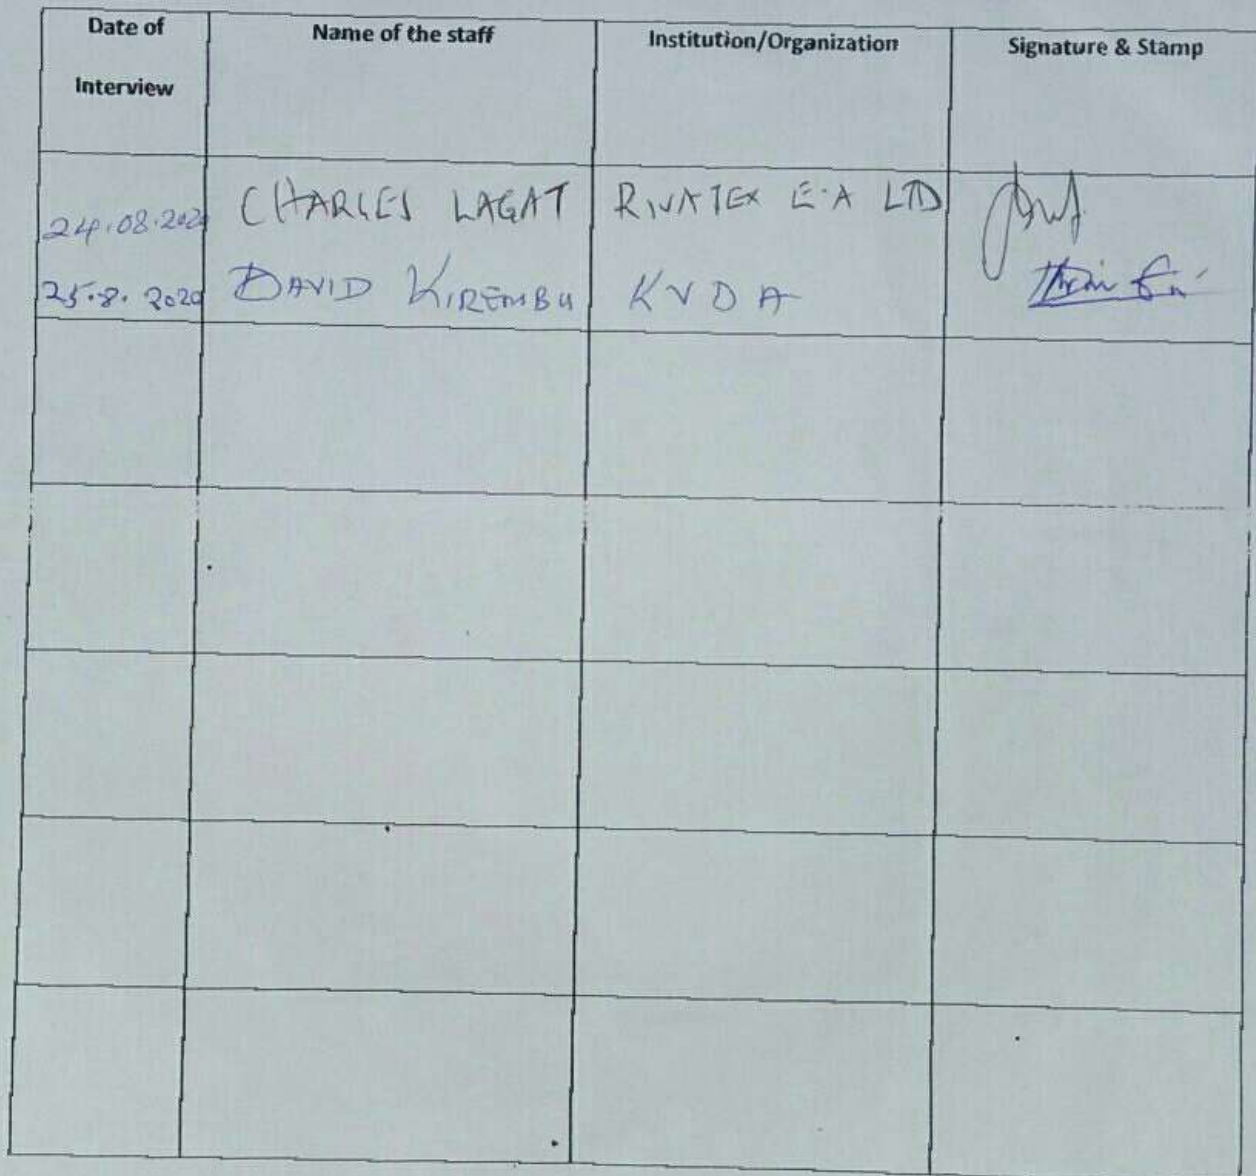 Date of Interview Name of the staff Institution/Organization Signature & Stamp
24.08.2020 CHARLES LAGAT RIVATEX E.A LTD
25.8.2020 DAVID KIREMBU KVDA